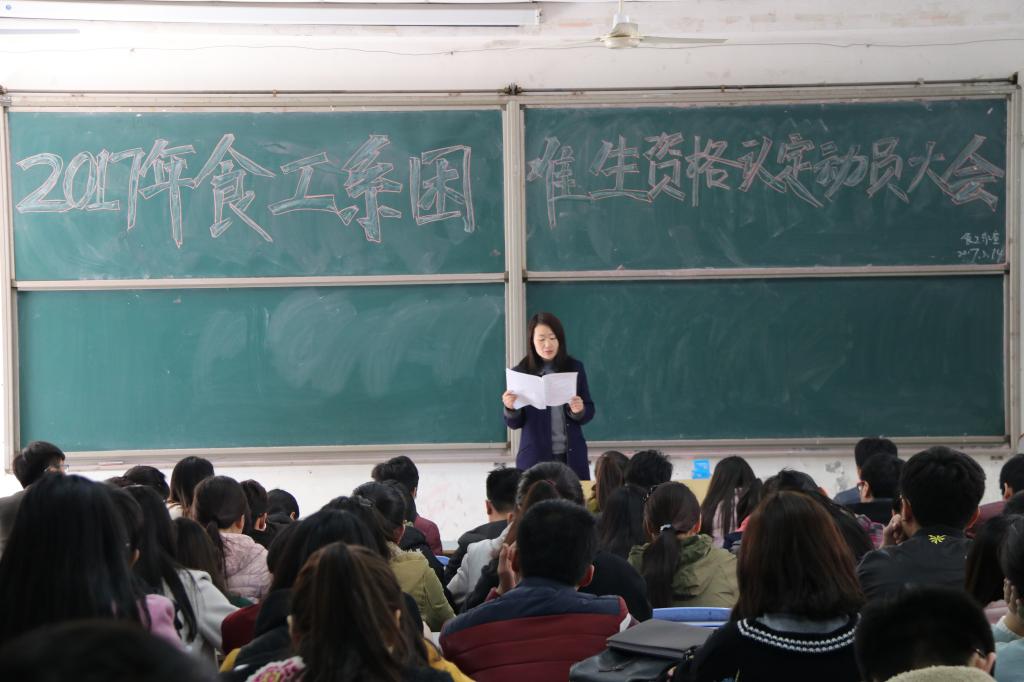 2017年食工系困难生资格认定动员大会
食工系宣
2017.3.14